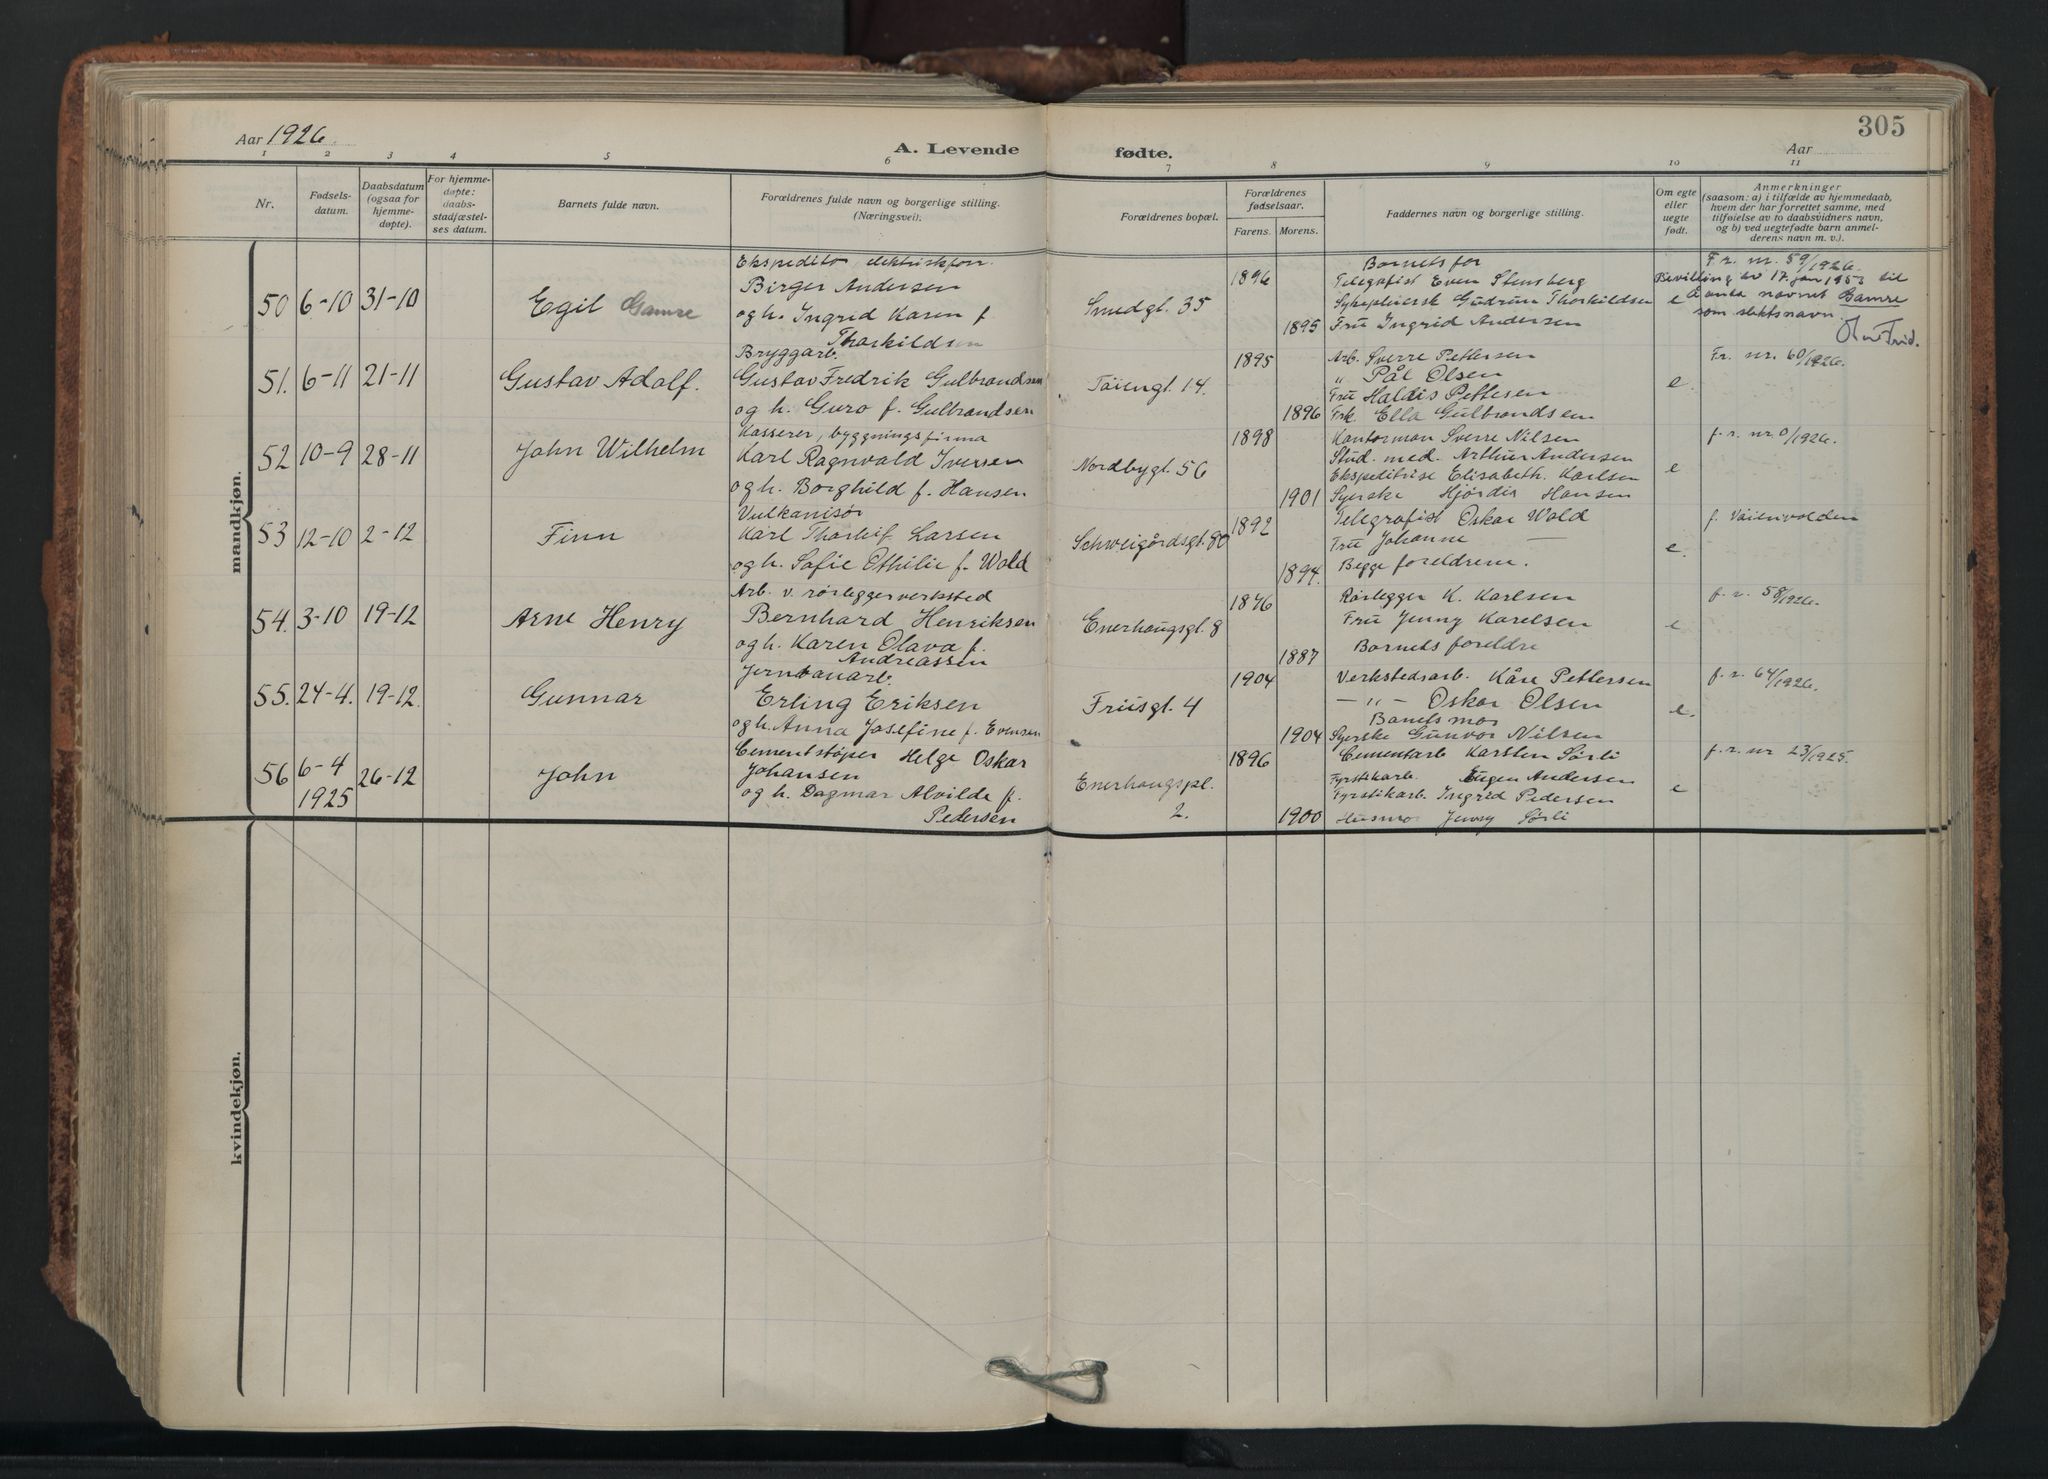 305
Aar 1926
A. Levende fødte.
Aar
1 2 3 4 5 6 7 8 9 10 11
Nr.
Fødsels-
datum.
Daabsdatum
(ogsaa for
hjemme-
døpte).
For hjemme-
døpte:
daabs-
stadfæstel-
ses datum.
Barnets fulde navn.
Forældrenes fulde navn og borgerlige stilling.
(Næringsvei).
Forældrenes bopæl.
Forældrenes
fødselsaar.
Farens. Morens.
Faddernes navn og borgerlige stilling.
Om egte
eller
uegte
født.
Anmerkninger
(saasom: a) i tilfælde av hjemmedaab,
hvem der har forrettet samme, med
tilføielse av to daabsvidners navn,
og b) ved uegtefødte barn anmel-
derens navn m. v.).
mandkjøn.
50 6-10 31-10 Egil Gamre
Ekspeditør elektriskforr.
Birger Andersen
og h. Ingrid Karen f.
Thorkildsen
Smedgt. 35
1896
1895
Barnets far
Telegrafist Even Stensberg
Sykepleiersk Gudrun Thorkildsen
Fru Ingrid Andersen
e
F. r. nr. 59/1926.
Bevilling av 17. jan 1953 til
å anta navnet Gamre
som slektsnavn.
51. 6-11 21-11 Gustav Adolf.
Bryggarb.
Gustav Fredrik Gulbrandsen
og h. Guro f. Gulbrandsen
Töiengt. 14.
1895
1896
Arb. Sverre Pettersen
" Pål Olsen
Fru Haldis Pettesen
Frk. Ella Gulbrandsen
e.
Fr. nr. 60/1926.
52 10-9 28-11 John Wilhelm
Kasserer, byggningsfirma
Karl Ragnvald Iversen
og h. Borghild f. Hansen
Nordbygt. 56
1898
1901
Kontorman Sverre Nilsen
Stud. med. Arthur Andersen
Ekspeditrise Elisabeth Karlsen
Syerske Hjördis Hansen
e
f. r. nr. 0/1926.
53 12-10 2-12 Finn
Vulkanisør
Karl Thorleif Larsen
og h. Sofie Othilie f. Wold
Schweigårdsgt. 80
1892
1894.
Telegrafist Oskar Wold
Fru Johanne —
Begge foreldrene.
e.
f. Vaienvolden
54. 3-10 19-12 Arne Henry
Arb. v. rørleggerverksted
Bernhard Henriksen
og h. Karen Olava f.
Andreassen
Enerhaugsgt. 8
1876
1887
Rørlegger K. Karlsen
Fru Jenny Karelsen
Barnets foreldre
e
f. r. 58/1926.
55. 24-4. 19-12. Gunnar
Jernbanarb.
Erling Eriksen
og h. Anna Josefine f. Evensen
Friisgt. 4
1904
1904
Verkstedsarb. Kåre Pettersen
— " — Oskar Olsen
Barnets mor
Syerske Gunvor Nilsen
e.
f. r. 64/1926.
56 6-4 1925 26-12 John
Cementstøper Helge Oskar
Johansen
og h. Dagmar Alvilde f.
Pedersen
Enerhaugspl.
2.
1896
1900
Cementarb. Karsten Sørli
Fyrstikarb. Eugen Andersen
Fyrstikarb. Ingrid Pedersen
Husmor Jenny Sørli
e
f. r. nr 23/1925.
kvindekjøn.